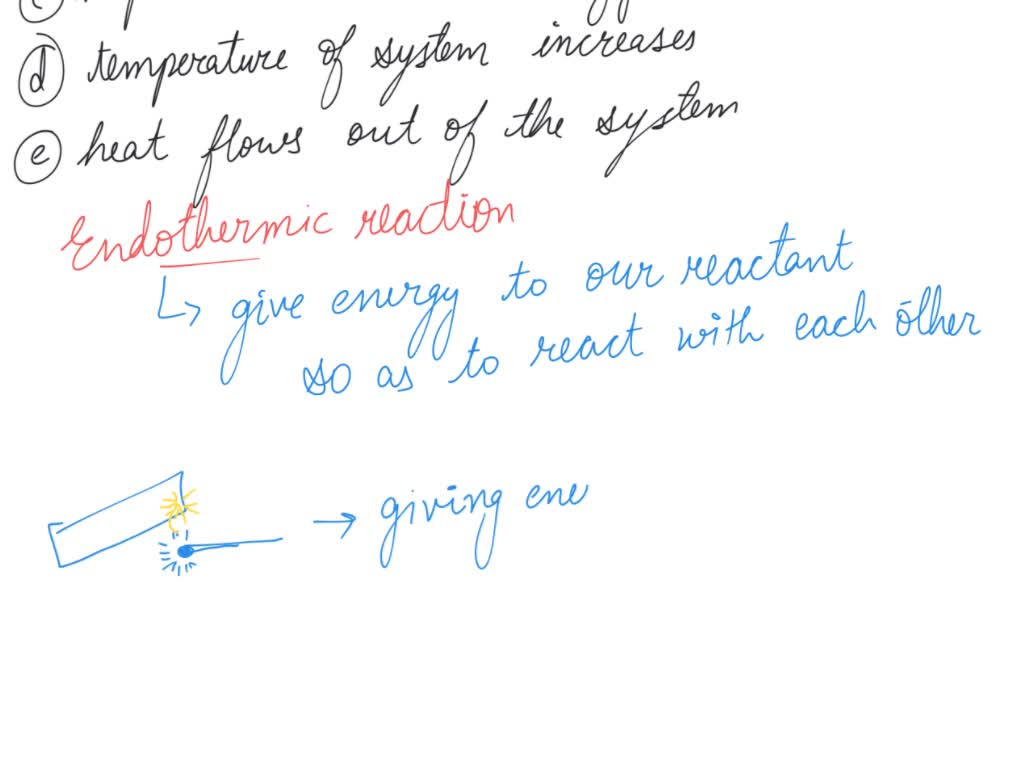 (d) temperature of system increases
(e) heat flows out of the system
Endothermic reaction
↳ give energy to our reactant
so as to react with each other
→ giving ene